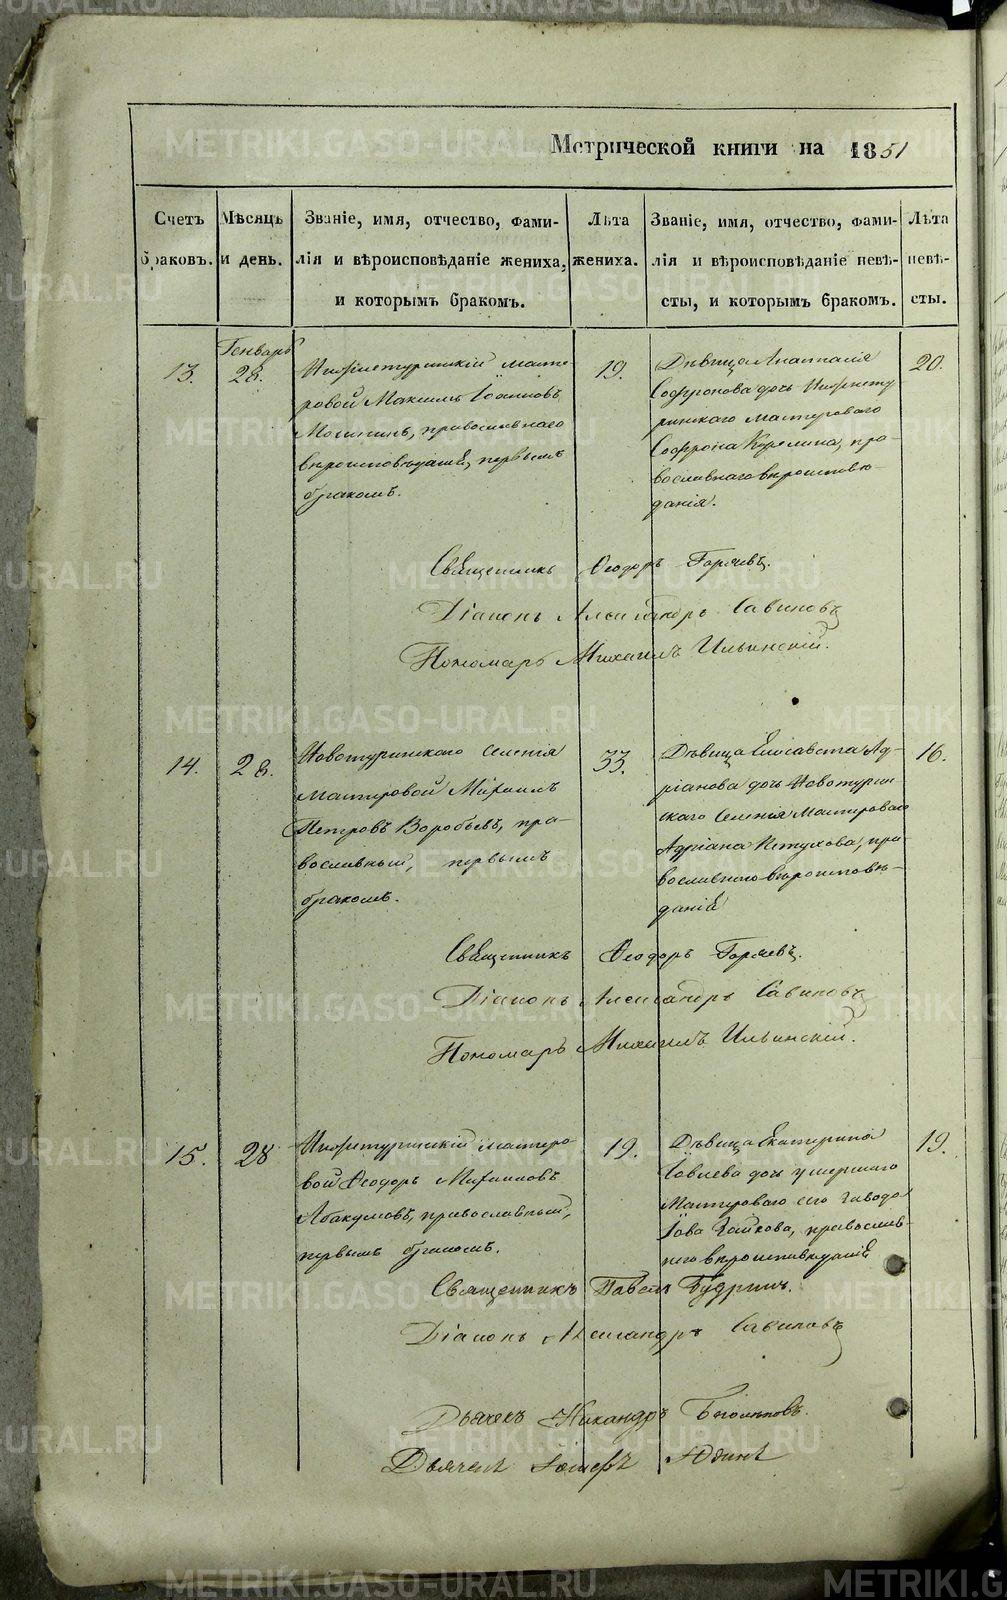 METRIKI.GASO-URAL.RU
Метрической книги на 1851
Счетъ браковъ.
Мѣсяцъ и день.
Званіе, имя, отчество, фами-
лія и вѣроисповѣданіе жениха,
и которымъ бракомъ.
Лѣта
жениха.
Званіе, имя, отчество, фами-
лія и вѣроисповѣданіе невѣ-
сты, и которымъ бракомъ.
Лѣта
невѣ-
сты.
13.
Генварь
28.
Нижнетуринскій масте-
ровой Максимъ Іоанновъ
православнаго
вѣроисповѣданія, первымъ
бракомъ.
19.
Дѣвица Анастасія
Софронова дочь Нижнету
ринскаго мастероваго
Софрона Курелина, пра-
вославнаго вѣроисповѣ-
данія.
20.
Священникъ Ѳеодоръ Горяевъ.
Діаконъ Александръ Савиновъ
Пономарь Михаилъ Ильинскій.
14.
28.
Новотуринскаго селенія
мастеровой Михаилъ
Петровъ Воробьевъ, пра-
вославный, первымъ
бракомъ.
33.
Дѣвица Елисавета Ад-
ріанова дочь Новотурин
скаго селенія мастероваго
Адріана Петухова, пра-
вославнаго вѣроисповѣ-
данія
16.
Священникъ Ѳеодоръ Горяевъ.
Діаконъ Александръ Савиновъ
Пономарь Михаилъ Ильинскій.
15.
28
Нижнетуринскій мастеро-
вой Ѳеодоръ Михаиловъ
Абакумовъ, православный,
первымъ бракомъ.
19.
Дѣвица Екатерина
Іовлева дочь умершаго
мастероваго сего завода
Іова православ-
наго вѣроисповѣданія
19.
Священникъ Павелъ Будринъ.
Діаконъ Александръ Савиновъ
Дьячекъ Никандръ
Дьячекъ Юдинъ